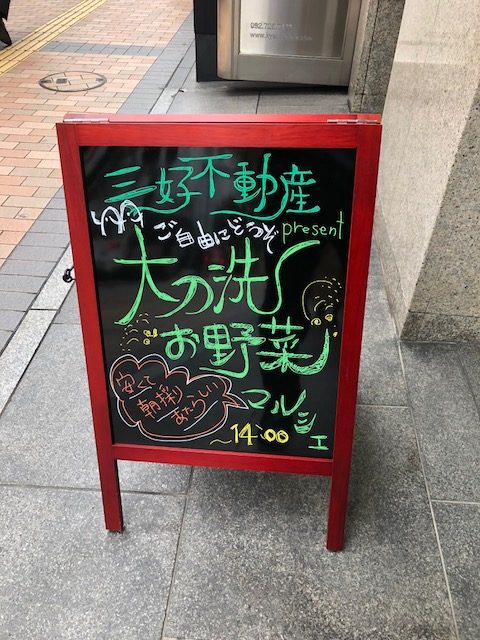 三好不動産
ご自由にどうぞ
present
大刀洗
お野菜
マルシェ
安くて
朝採り
あたらしい
～14:00